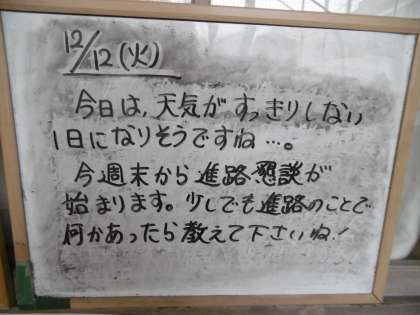 12/12(火)
今日は、天気がすっきりしない
1日になりそうですね…。
今週末から進路懇談が
始まります。少しでも進路のことで
何かあったら教えて下さいね!